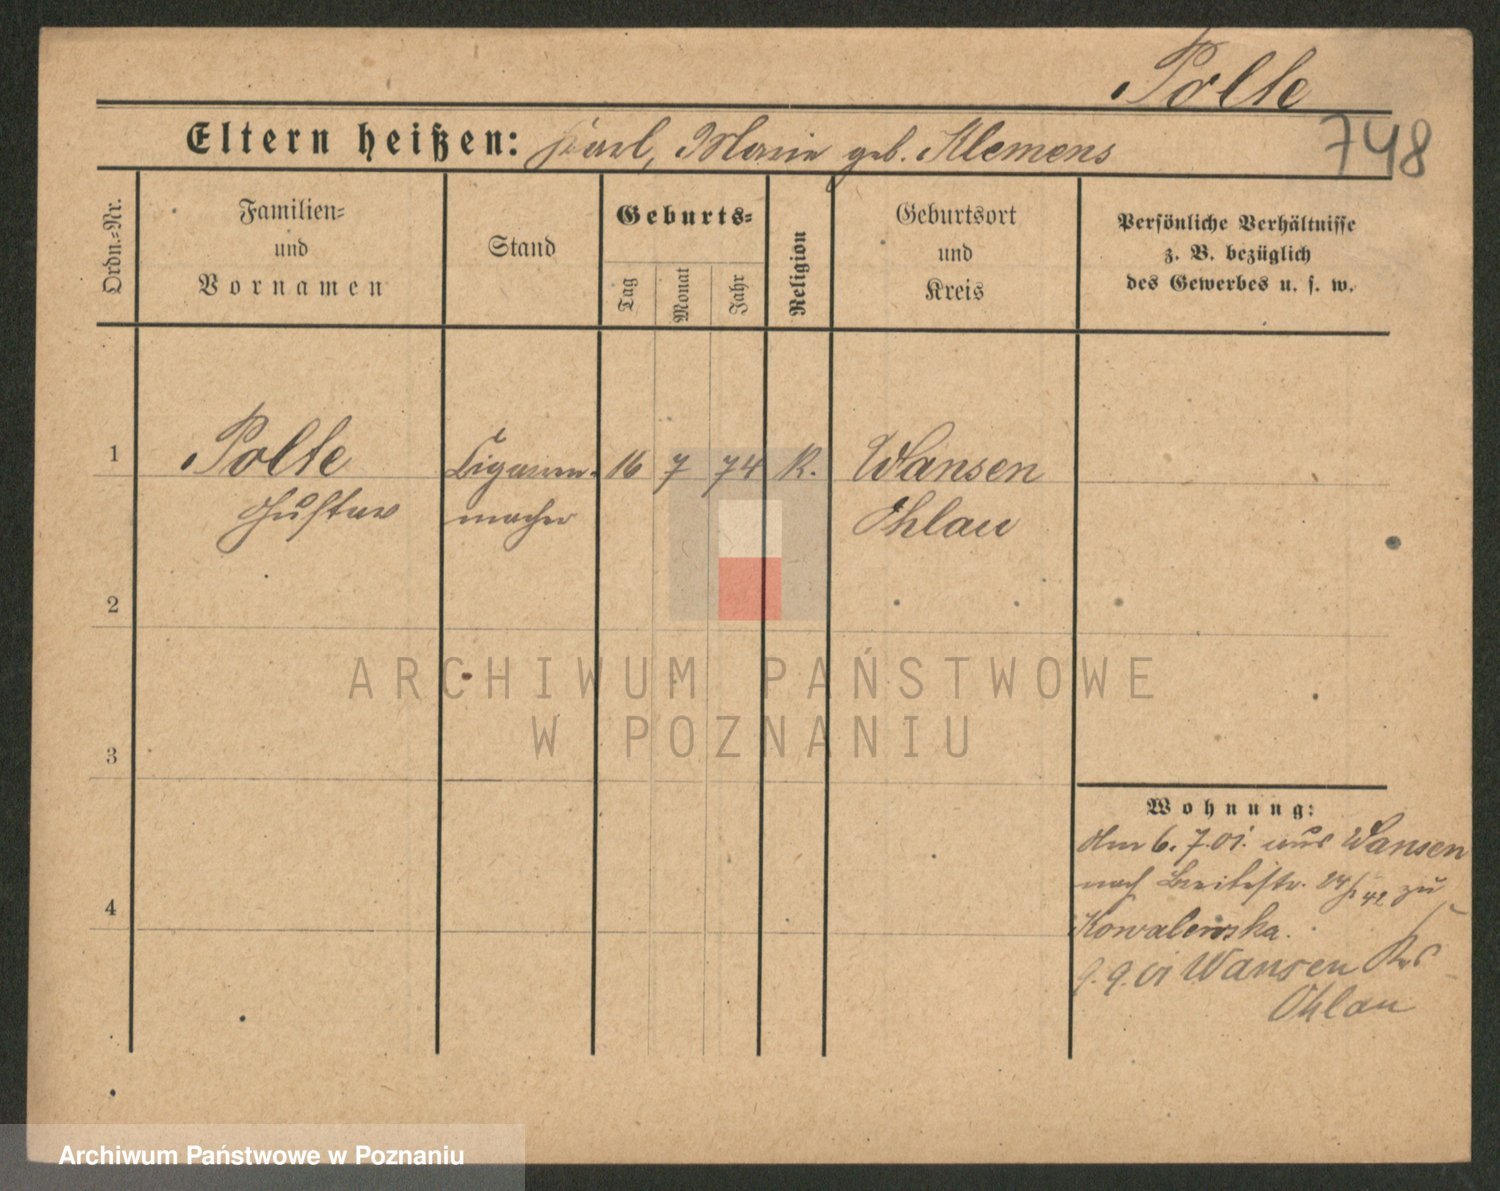 Polte
748
Eltern heißen: Karl, Marie geb. Klemens
Ordn.-Nr.
Familien-
und
Vornamen
Stand
Geburts-
Tag
Monat
Jahr
Religion
Geburtsort
und
Kreis
Persönliche Verhältnisse
z. B. bezüglich
des Gewerbes u. s. w.
1 Polte Cigarren- 16 7 74 K. Wansen
Gustav macher Ohlau
2
3
4
Wohnung:
Am 6. 7. 01. aus Wansen
nach Breitestr. 24 zu
Kowalewska.
9. 9. 01 Wansen Krs
Ohlau
ARCHIWUM PAŃSTWOWE
W POZNANIU
Archiwum Państwowe w Poznaniu